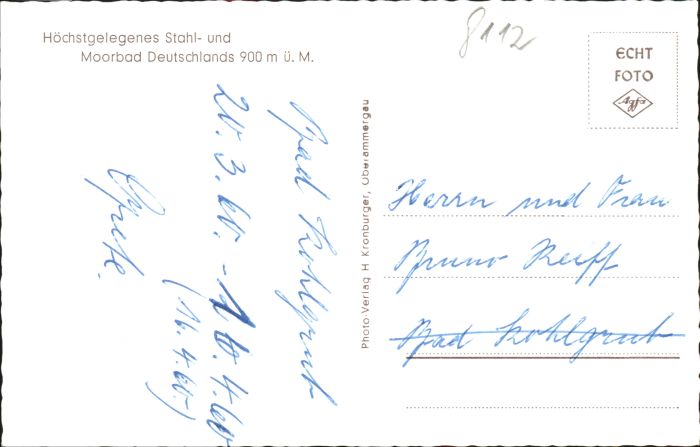 Höchstgelegenes Stahl- und
Moorbad Deutschlands 900 m ü. M.
8112
ECHT
FOTO
Agfa
Bad Kohlgrub
20. 3. 60. - 16. 4. 60
(16. 4. 60.)
Grete.
Photo-Verlag H Kronburger, Oberammergau
Herrn und Frau
Bruno Reiff
Bad Kohlgrub